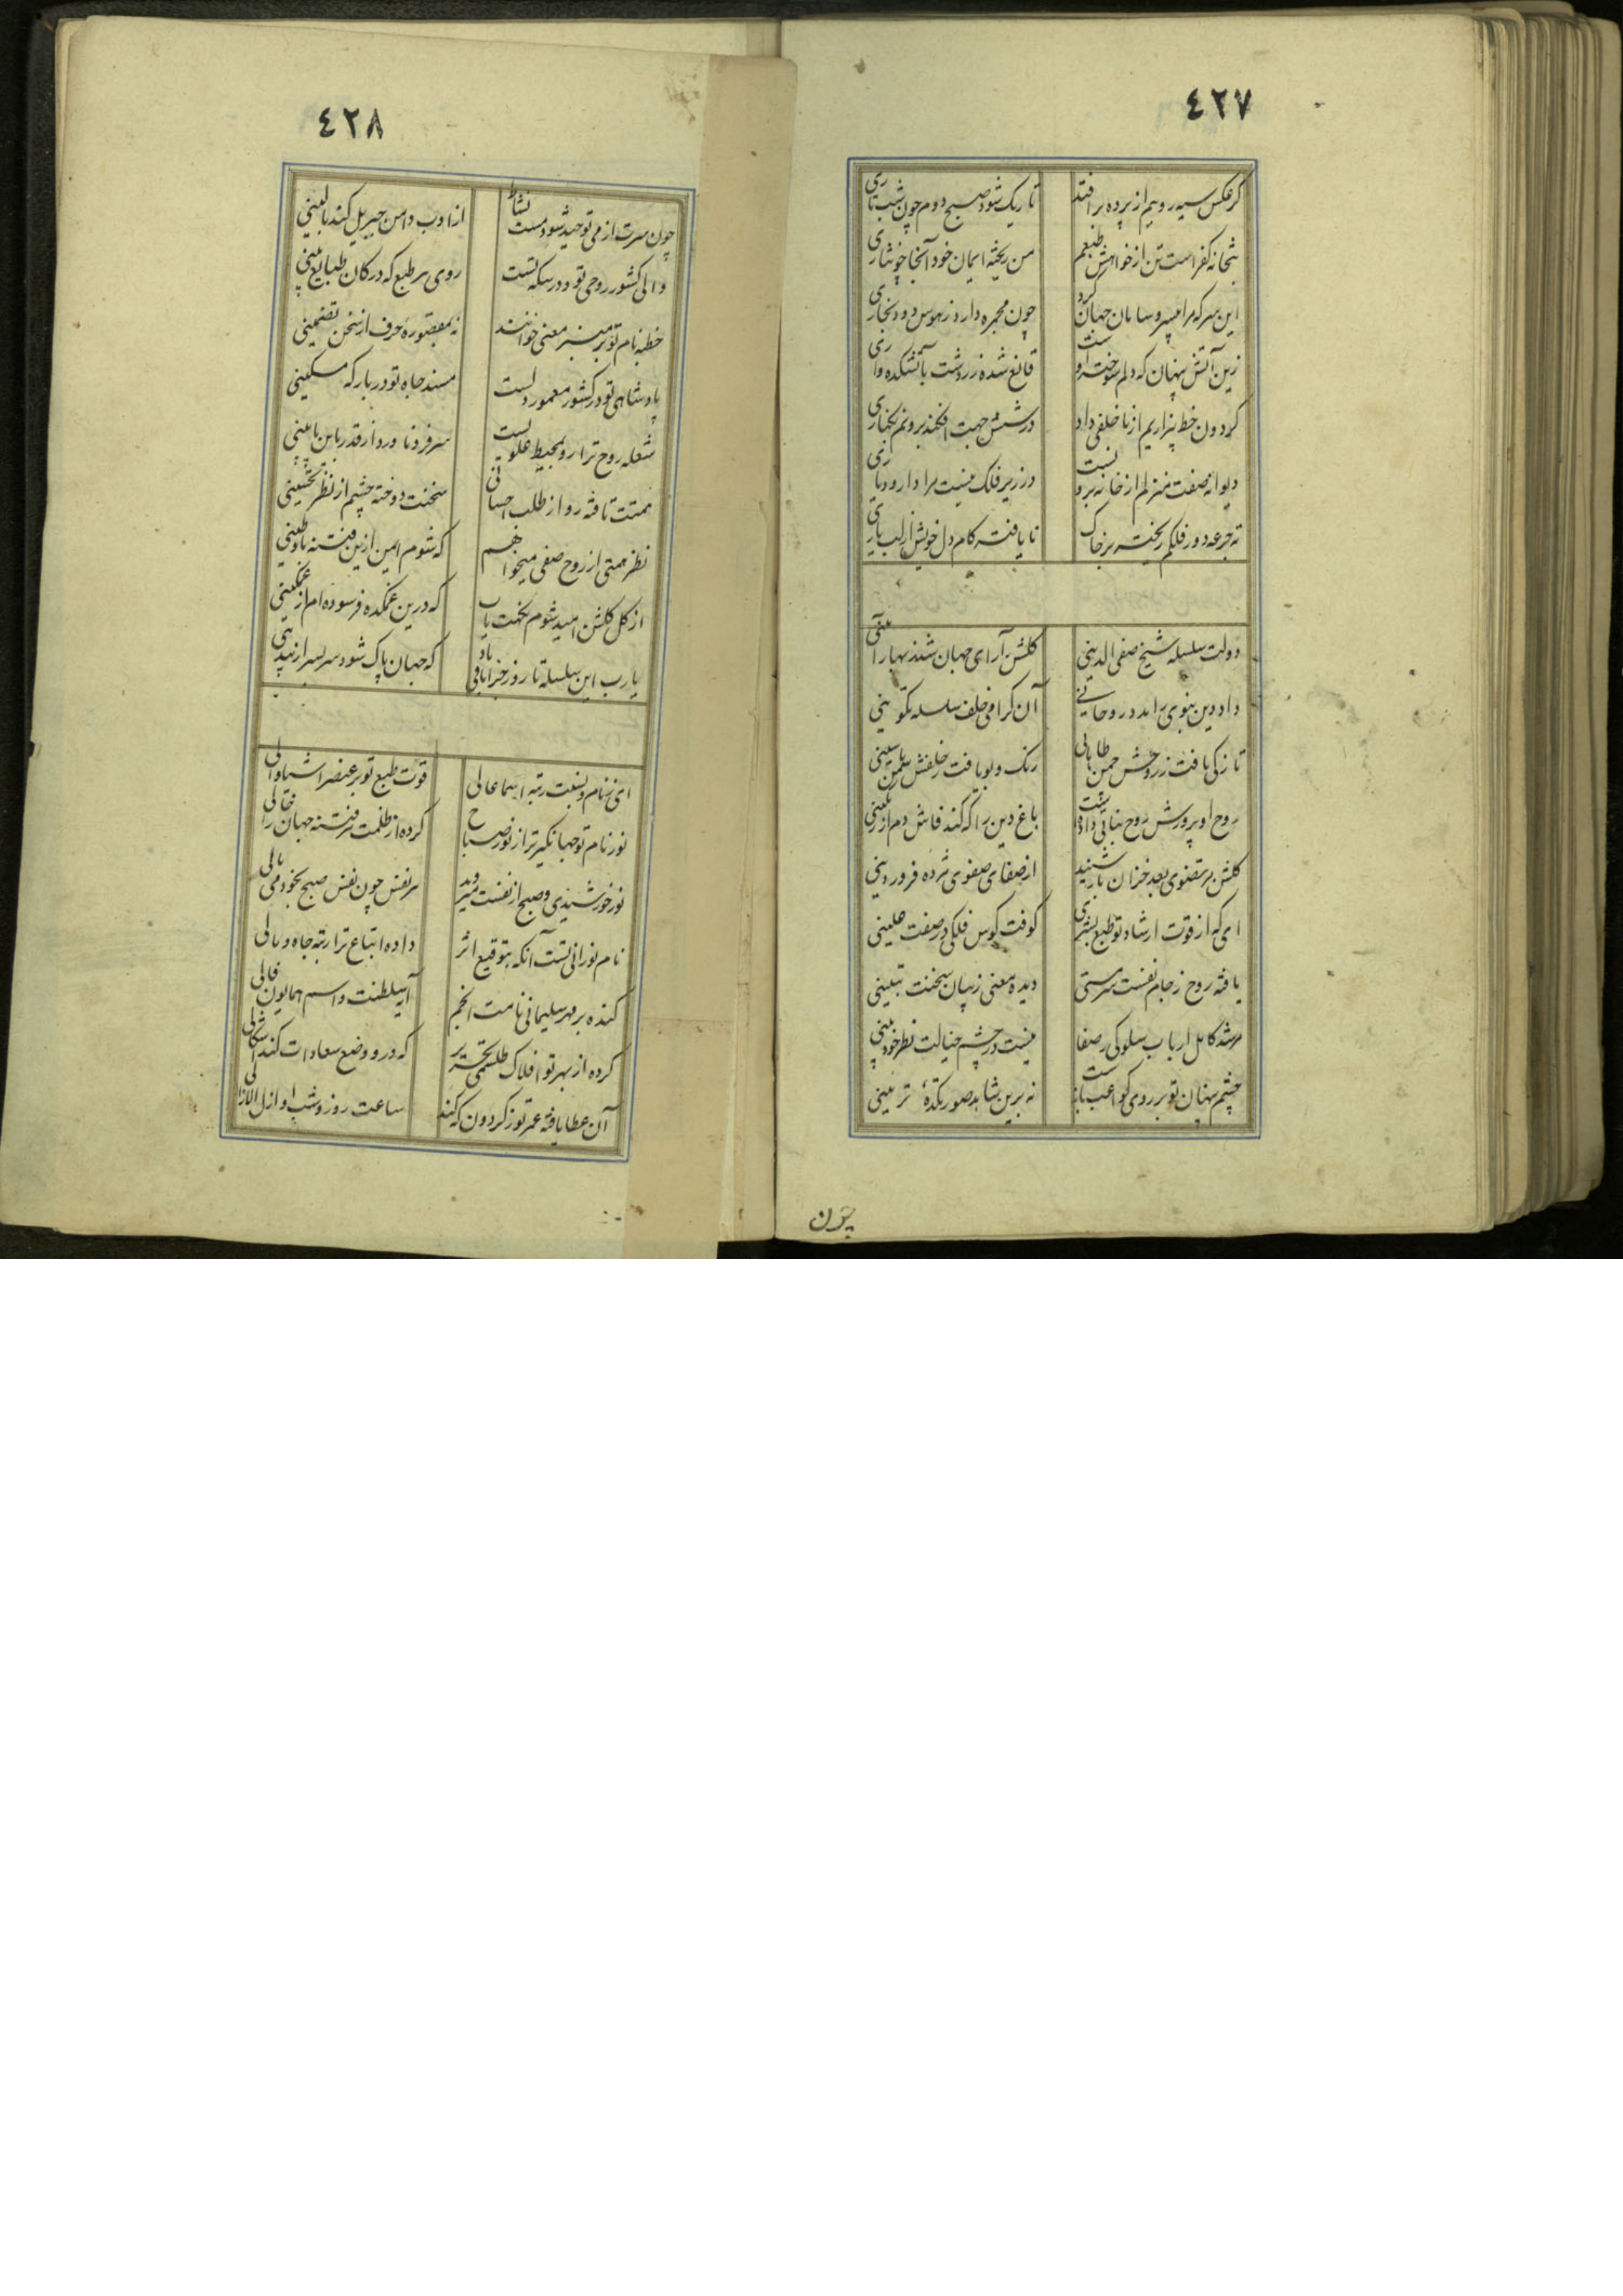 ٤٢٧
گر عکس سیه رویم از پرده برافتد تاریک شود صبح دوم چون شب تاری
بتخانه کفر است تن از خواهش طبعم من ریخته ایمان خود آنجا چو نثاری
این سر که مرا بی سر و سامان جهان کرد چون مجمره دارد ز هوس دود بخاری
زین آتش پنهان که دلم سوخته اوست قانع شده زردشت بآتشکده واری
گردون خط بیزاریم از ناخلفی داد در شش جهت افکند برونم بکناری
دیوانه صفت منزلم از خانه برونست در زیر فلک نیست مرا دار و دیاری
ته جرعه دور فلکم ریخته بر خاک نایافته کام دل خویش از لب یاری
دولت سلسله شیخ صفی الدینی گلشن آرای جهان شد ز بهار آئینی
داد دین نبوی را مدد روحانی آن گرامی خلف سلسله تکوینی
تازگی یافت ز روحش چمن طابائی رنگ و بو یافت ز خلقش سمن یاسینی
روح او پرورش روح بنائی دادست باغ دین را که کند فاش دم از رنگینی
گلشن مرتضوی بعد خزان باز شنید از صفای صفوی مژده فروردینی
ای که از قوت ارشاد تو طبع بشری کوفت کوس فلکی در صفت علیینی
یافته روح ز جام نفست سرمستی دیده معنی ز بیان سخنت تبیینی
مرشد کامل ارباب سلوکی ز صفا نیست در چشم خیالت نظر خودبینی
چشم پنهان تو بر روی کواعب بازست نه برین شاهد صورتکده تزیینی
چون
٤٢٨
چون سرت از می توحید شود مست نشاط از ادب دامن جبریل کند بالینی
والی کشور روحی تو و در سکه تست روی هر طبع که در کان طبایع بینی
خطبه نام تو بر منبر معنی خوانند نه بمقصوره حرف از سخن تضمینی
پادشاهی تو در کشور معمور دلست مسند جاه تو در بارکه مسکینی
شعله روح ترا رو بمحیط علویست سر فرو ناورد از قدر باین پائینی
همتت تافته رو از طلب احسانی سخنت دوخته چشم از نظر تحسینی
نظر همتی از روح صفی میخواهم که شوم ایمن ازین فتنه باد و طینی
از گل گلشن امید شوم نکهت یاب که درین غمکده فرسوده ام از غمگینی
یا رب این سلسله تا روز جزا باقی باد که جهان پاک شود سربسر از بیدینی
ای ز نام و نسبت رتبه اسما عالی قوت طبع تو بر عنصر اشیا والی
نور نام تو جهانگیرتر از نور صباح کرده از ظلمت هر فتنه جهان را خالی
نور خورشیدی و صبح از نفست میروید هر نفس چون نفس صبح بخود می بالی
نام نورانی تست آنکه بتوقیع اثر داده اتباع ترا رتبه جاه و مالی
کنده بر مهر سلیمانی نامت انجم آیه سلطنت و اسم همایون فالی
کرده از بهر تو افلاک طلسمی تحریر که در و وضع سعادات کند اشکالی
آن عطا یافته عمر تو ز گردون که کند ساعت روز و شب او ازل الازالی